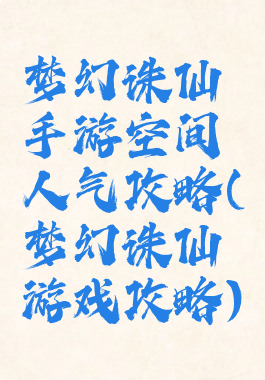 梦幻诛仙
手游空间
人气攻略(
梦幻诛仙
游戏攻略)